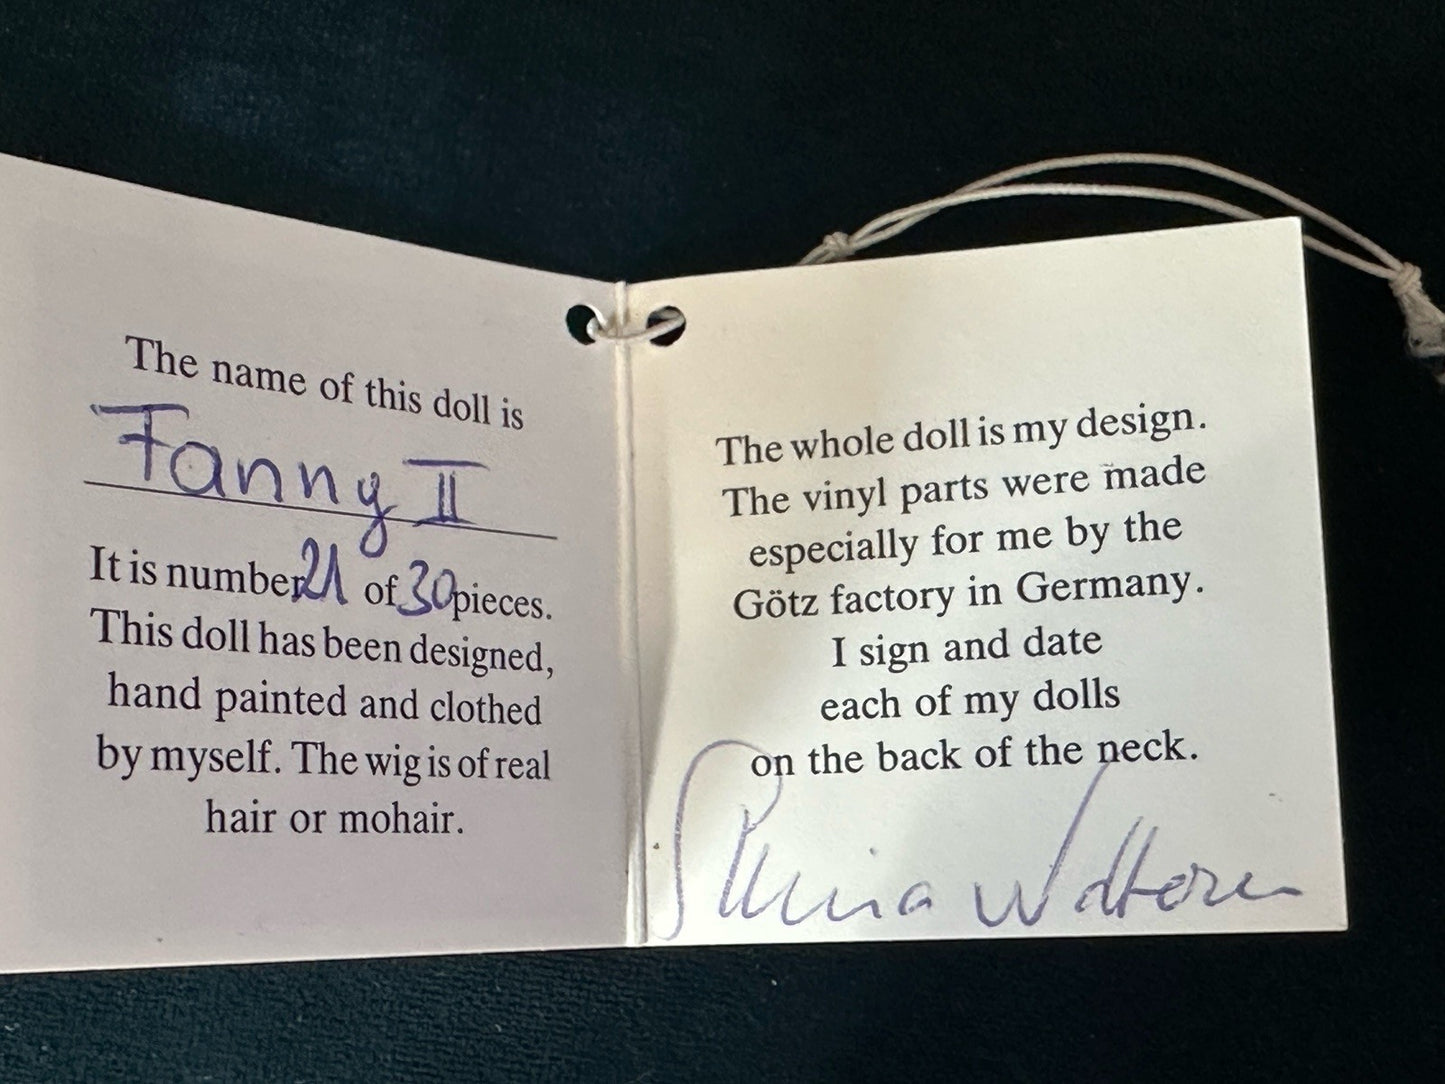 The name of this doll is
Fanny II
It is number 21 of 30 pieces.
This doll has been designed,
hand painted and clothed
by myself. The wig is of real
hair or mohair.
The whole doll is my design.
The vinyl parts were made
especially for me by the
Götz factory in Germany.
I sign and date
each of my dolls
on the back of the neck.